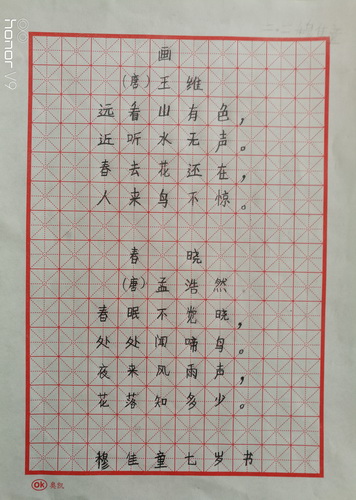 画
（唐）王维
远看山有色，
近听水无声。
春去花还在，
人来鸟不惊。
春晓
（唐）孟浩然
春眠不觉晓，
处处闻啼鸟。
夜来风雨声，
花落知多少。
穆佳童七岁书
OK 奥凯
honor V9